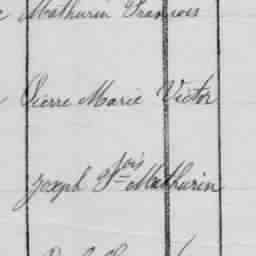 Mathurin François
Pierre Marie Victor
Joseph Fçois Mathurin